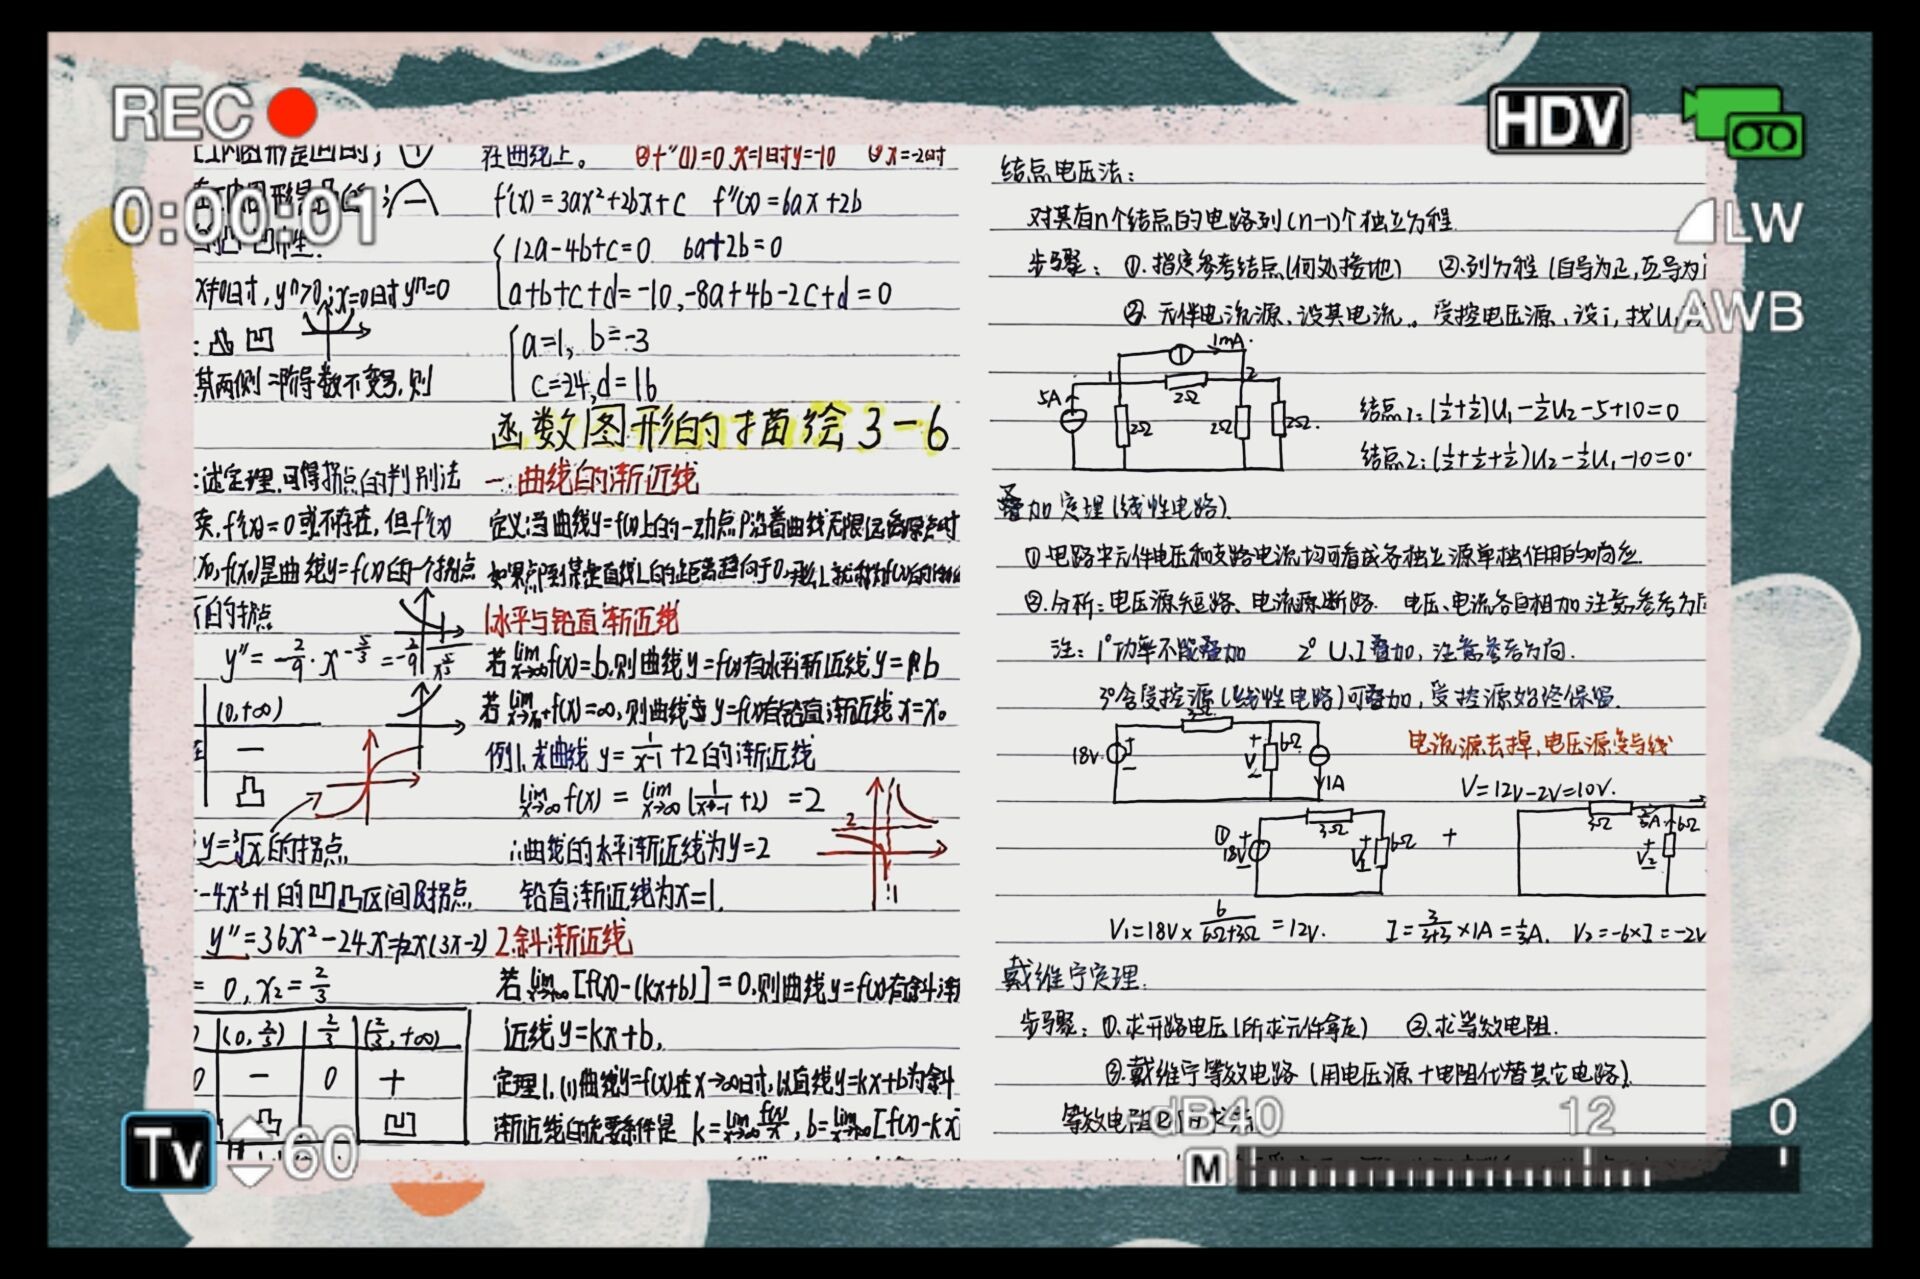 REC
HDV
0:00:01
LW
AWB
x≠0时,y''>0;x=0时y''=0
其两侧二阶导数不变号,则
:述定理,可得拐点的判别法
f''(x)=0或不存在,但f''(x)
f(x₀))是曲线y=f(x)的一个拐点
的拐点
y''=-2/9·x^(-5/3)=-2/9
(0,+∞)
—
凸
y=³√x的拐点
-4x³+1的凹凸区间及拐点
y''=36x²-24x=12x(3x-2)
=0,x₂=2/3
(0,2/3) 2/3 (2/3,+∞)
0 — 0 +
凸 凹
在曲线上。 ②f''(1)=0,x=1时y=-10 ③x=-2时
f'(x)=3ax²+2bx+c f''(x)=6ax+2b
12a-4b+c=0 6a+2b=0
a+b+c+d=-10,-8a+4b-2c+d=0
a=1, b=-3
c=-24,d=16
函数图形的描绘3-6
一.曲线的渐近线
定义:当曲线y=f(x)上的一动点P沿着曲线无限远离原点时
如果点P到某定直线L的距离趋向于0,那么L就称为f(x)的
1.水平与铅直渐近线
若lim x→∞ f(x)=b,则曲线y=f(x)有水平渐近线y=b
若lim x→x₀ f(x)=∞,则曲线y=f(x)有铅直渐近线x=x₀
例1.求曲线y=1/(x-1)+2的渐近线
lim x→∞ f(x)=lim x→∞ (1/(x-1)+2)=2
∴曲线的水平渐近线为y=2
铅直渐近线为x=1.
2 1
2.斜渐近线
若lim x→∞ [f(x)-(kx+b)]=0,则曲线y=f(x)有斜渐
近线y=kx+b,
定理1.(1)曲线y=f(x)在x→∞时,以直线y=kx+b为斜
渐近线的充要条件是 k=lim x→∞ f(x)/x, b=lim x→∞ [f(x)-kx]
结点电压法:
对具有n个结点的电路列(n-1)个独立方程.
步骤: ①.指定参考结点(何处接地) ②.列方程(自导为正,互导为
③ 元件电流源、设其电流。受控电压源,设i,找U
1mA
1 2
5A 2Ω
2Ω 2Ω 2Ω
结点1:(1/2+1/2)U₁-1/2U₂-5+10=0
结点2:(1/2+1/2+1/2)U₂-1/2U₁-10=0
叠加定理(线性电路).
①电路中元件电压和支路电流均可看成各独立源单独作用的响应.
②.分析:电压源短路、电流源断路. 电压、电流各自相加注意参考方向
注: 1°功率不能叠加 2° U,I叠加,注意参考方向.
3°含受控源(线性电路)可叠加,受控源始终保留.
3Ω
18V + - + V - 6Ω 1A
电流源去掉,电压源变导线
V=12V-2V=10V.
① 18V 3Ω V₁ 6Ω + 3Ω V₂ 6Ω
V₁=18V×6/(6Ω+3Ω)=12V. I=3/(3+3)×1A=1/3A. V₂=-6×I=-2V
戴维宁定理.
步骤: ①.求开路电压(所求元件拿走) ②.求等效电阻.
③.戴维宁等效电路(用电压源+电阻代替其它电路).
dB40 12 0
Tv 60
M